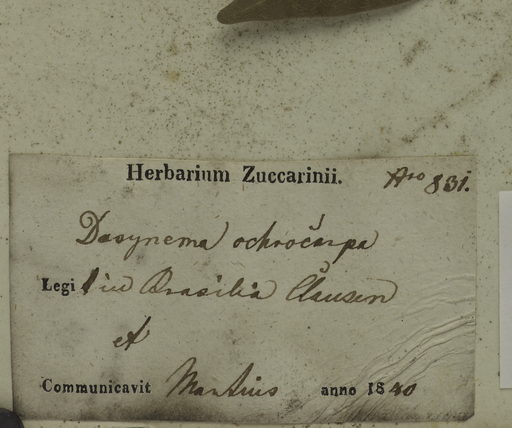 Herbarium Zuccarinii. Nro 831.
Dasynema ochrocarpa
Legi in Brasilia Clausen
et
Communicavit Martius anno 1840